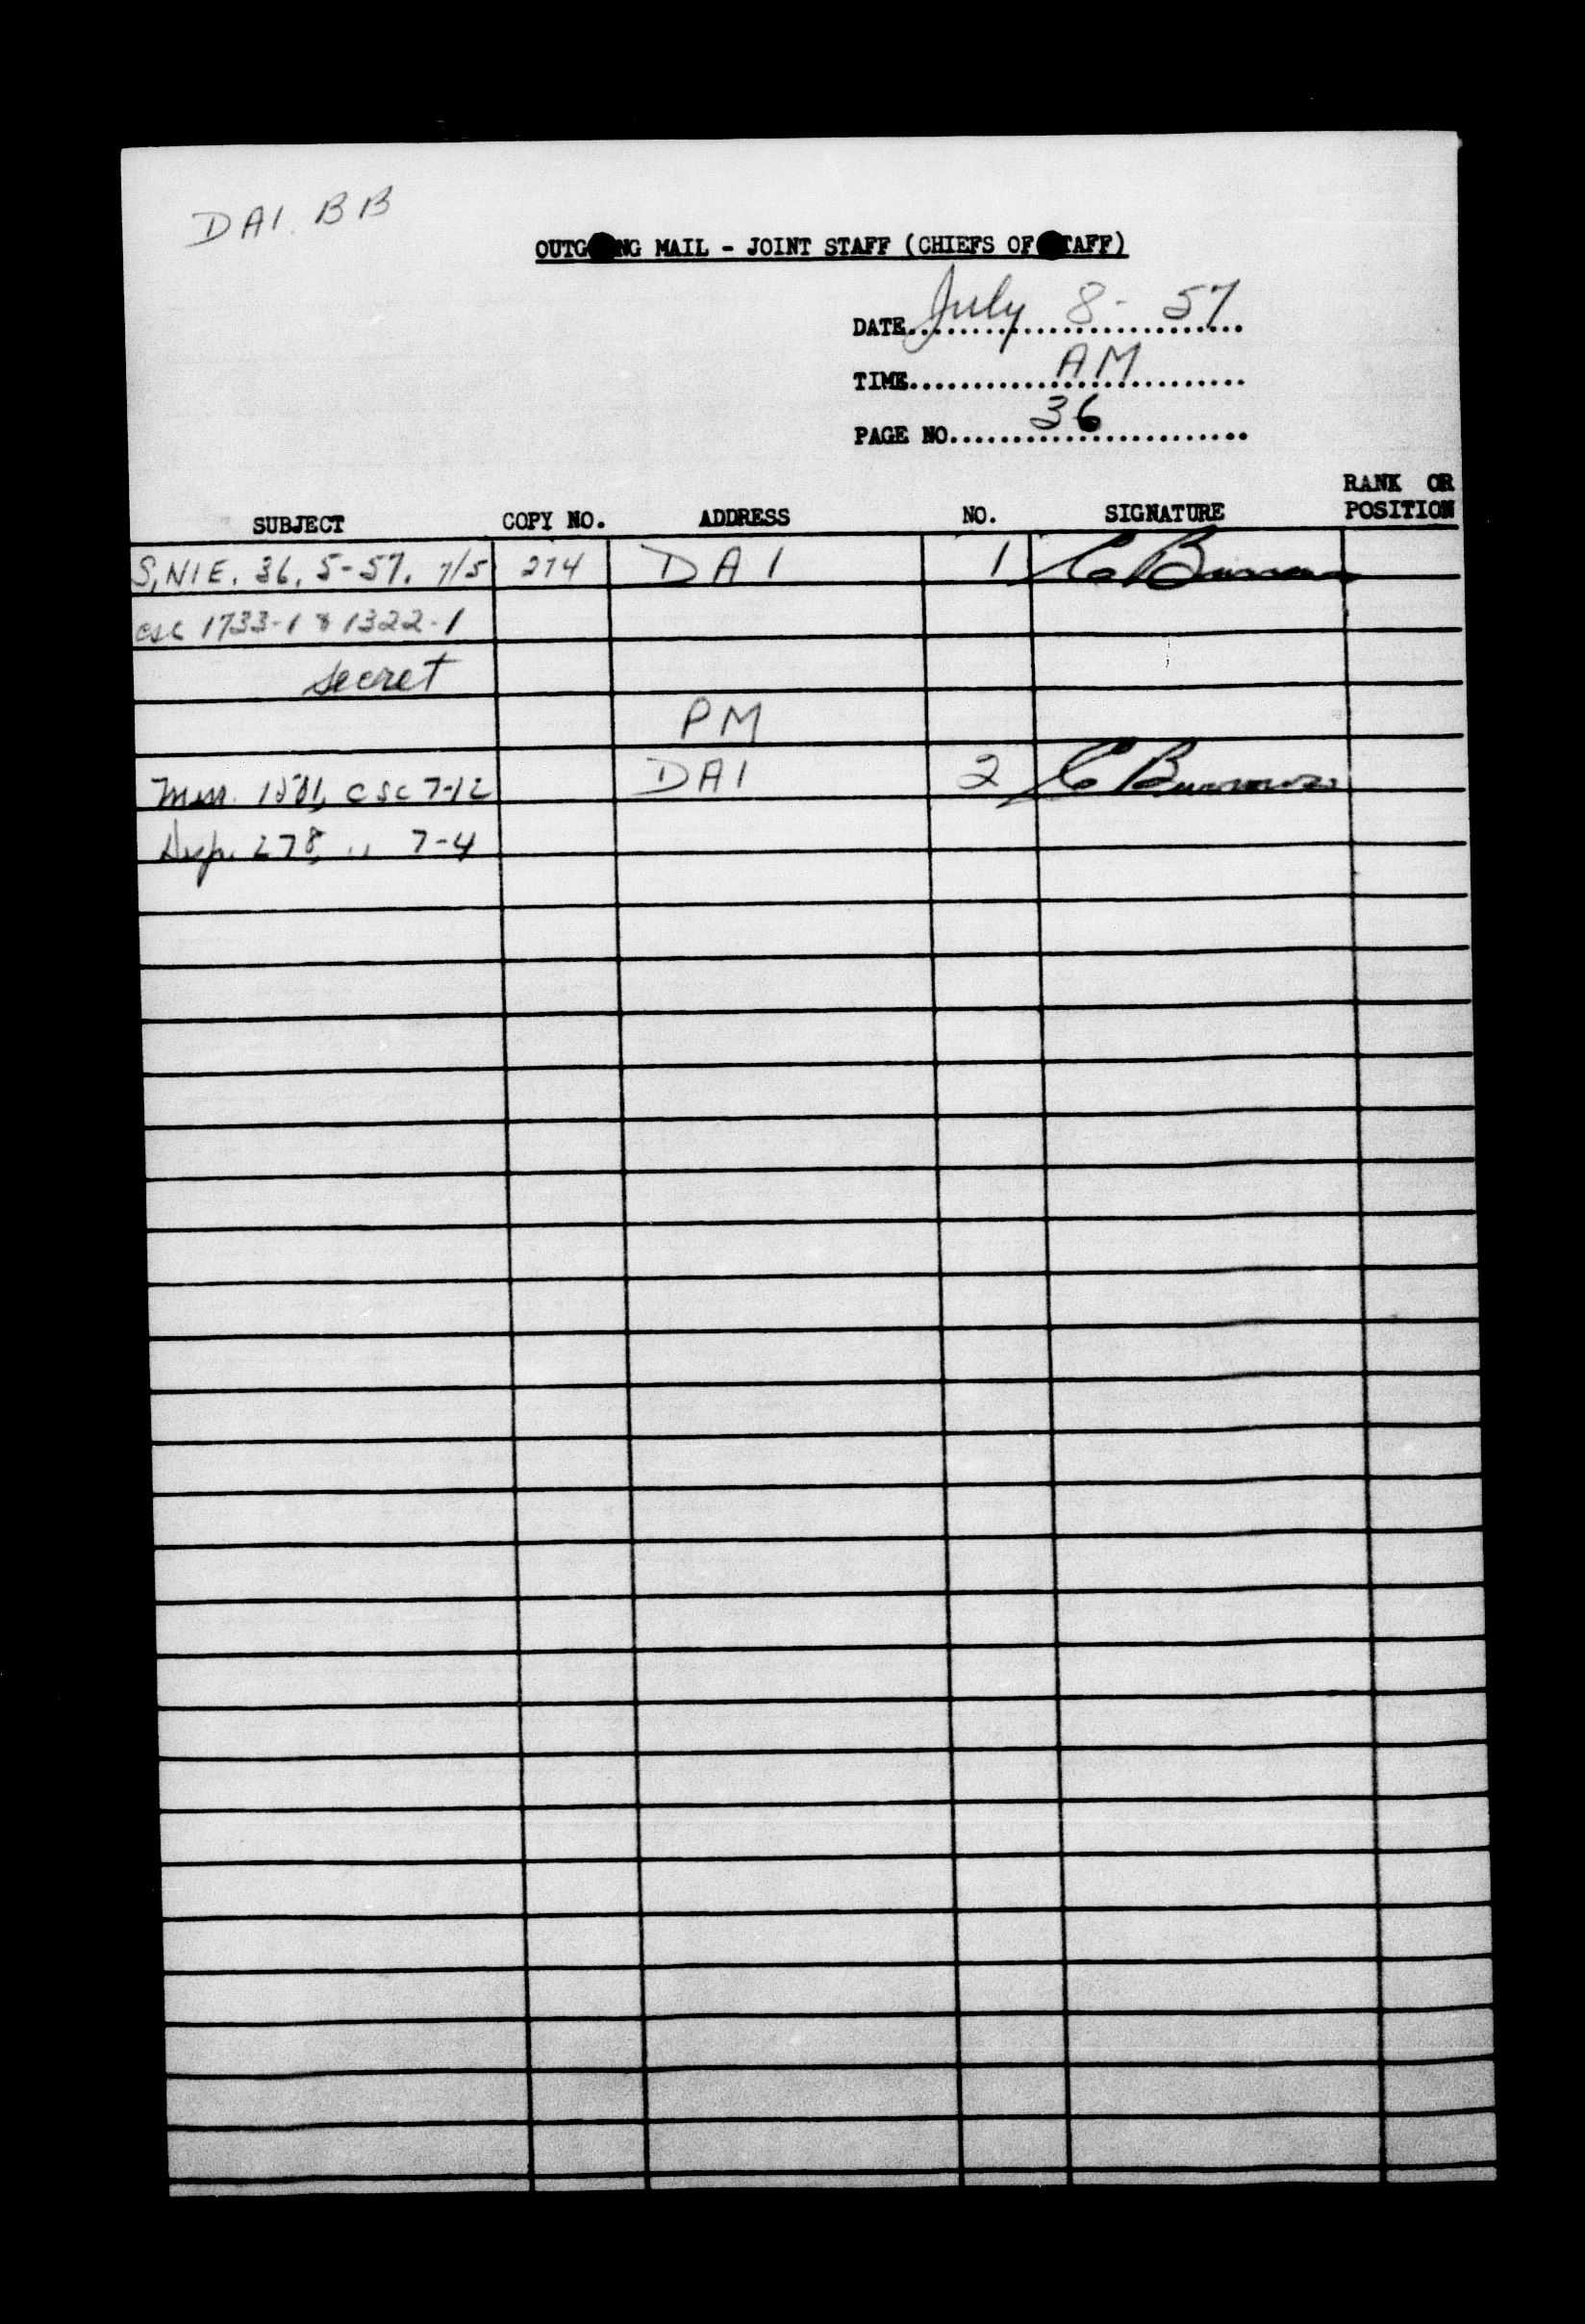 DAI. BB
OUTGOING MAIL - JOINT STAFF (CHIEFS OF STAFF)
DATE July 8 - 57
TIME AM
PAGE NO 36
SUBJECT COPY NO. ADDRESS NO. SIGNATURE RANK OR POSITION
S,NIE. 36. 5-57. 7/5 274 DAI 1
csc 1733-1 & 1322-1
secret
PM
1501, CSC 7-12 DAI 2 C Burrows
Desp. 278, " 7-4